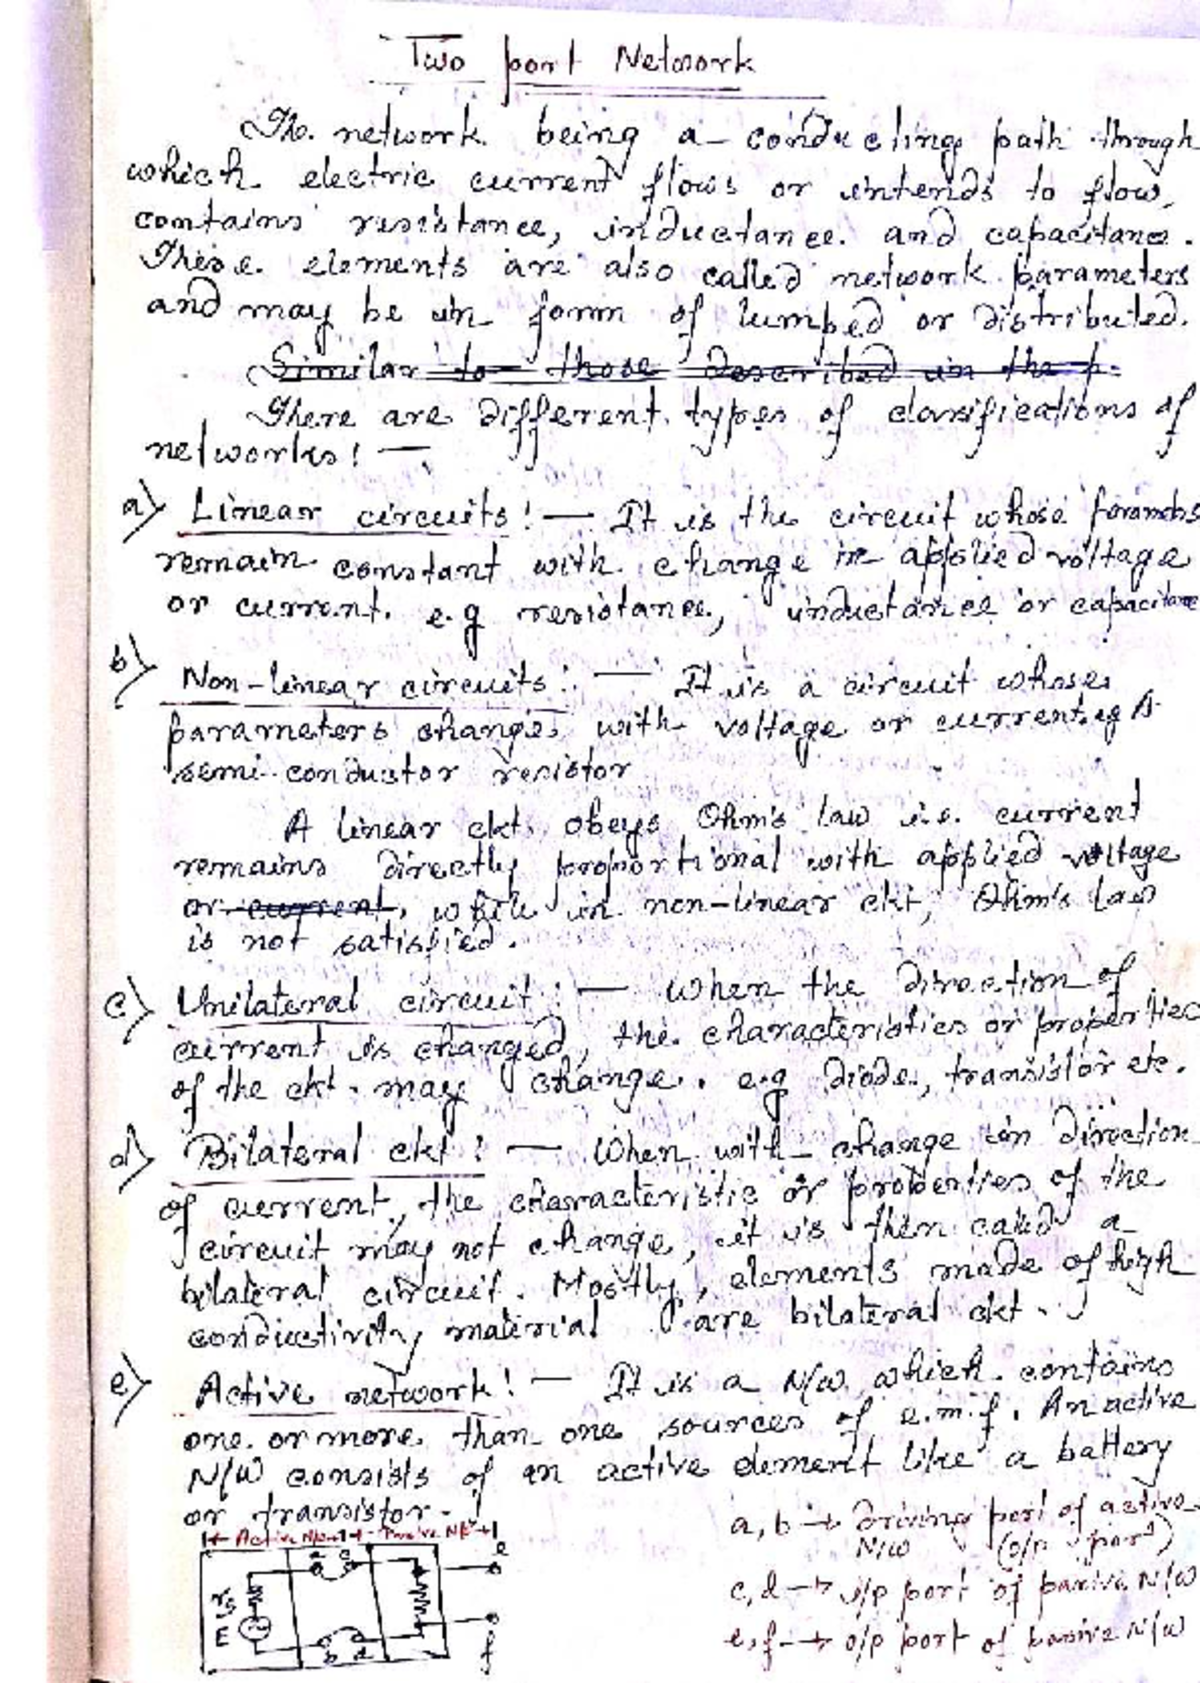 Two port Network
The network being a conducting path through
which electric current flows or intends to flow,
contains resistance, inductance and capacitance.
These elements are also called network parameters
and may be in form of lumped or distributed.
Similar to those described in the
There are different types of classifications of
networks! —
a) Linear circuits! — It is the circuit whose
remain constant with change in applied voltage
or current. e.g resistance, inductance or capacitance
b) Non-linear circuits: — It is a circuit whose
parameters change with voltage or current. eg A
semi-conductor resistor
A linear ckt. obeys Ohm's law i.e. current
remains directly proportional with applied voltage
or current, while in non-linear ckt, Ohm's law
is not satisfied.
c) Unilateral circuit: — When the direction of
current is changed, the characteristics or properties
of the ckt. may change. e.g diode, transistor etc.
d) Bilateral ckt! — When with change in direction
of current, the characteristic or properties of the
circuit may not change, it is then called a
bilateral circuit. Mostly, elements made of high
conductivity material are bilateral ckt.
e) Active network! — It is a N/W which contains
one or more than one sources of e.m.f. An active
N/W consists of an active element like a battery
or transistor.
Active N/W Passive N/W
a c e
E
b d f
a, b → driving port of active
N/W (o/p port)
c, d → i/p port of passive N/W
e, f → o/p port of passive N/W